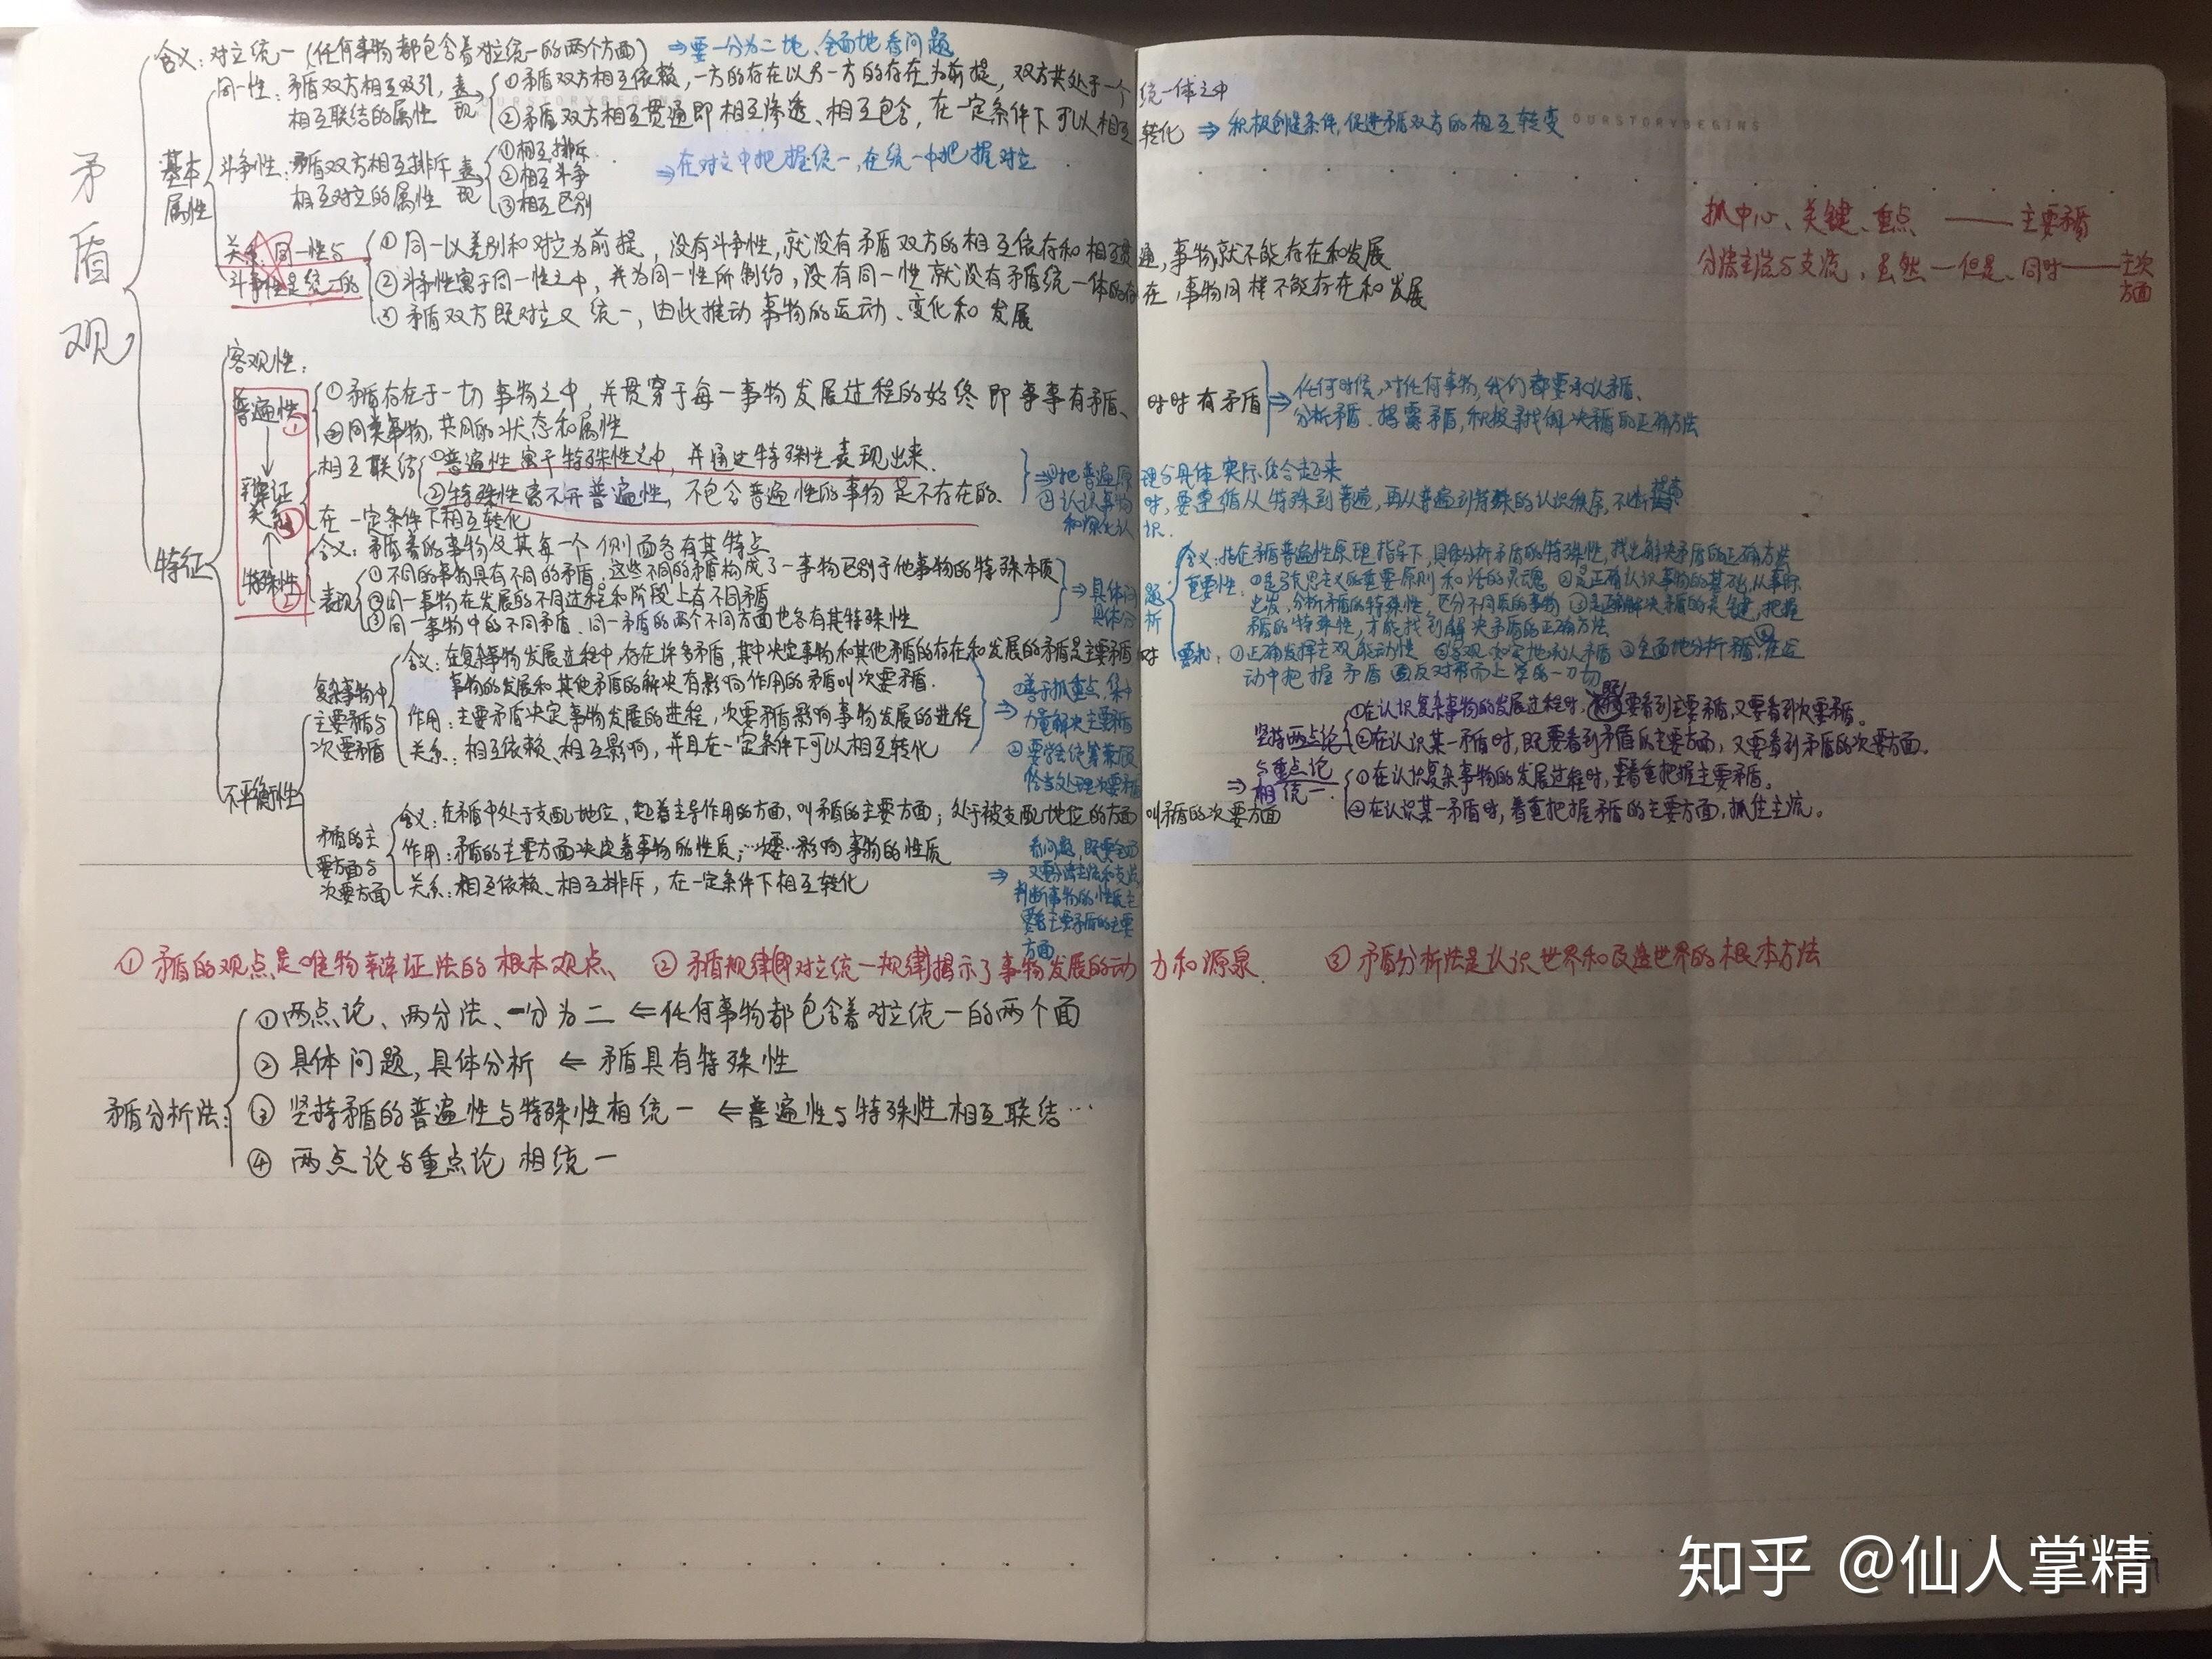 矛盾观
含义：对立统一（任何事物都包含着对立统一的两个方面）⇒要一分为二地、全面地看问题
基本属性
同一性：矛盾双方相互吸引，相互联结的属性 表现
①矛盾双方相互依赖，一方的存在以另一方的存在为前提，双方共处于一个统一体之中
②矛盾双方相互贯通即相互渗透、相互包含，在一定条件下可以相互转化 ⇒ 积极创造条件，促进矛盾双方的相互转变
OURSTORYBEGINS
斗争性：矛盾双方相互排斥 相互对立的属性 表现
①相互排斥
②相互斗争
③相互区别
⇒在对立中把握统一，在统一中把握对立
抓中心、关键、重点 —— 主要矛盾
分清主流与支流，虽然—但是、同时——主次方面
关系：同一性与斗争性是统一的
①同一以差别和对立为前提，没有斗争性，就没有矛盾双方的相互依存和相互贯通，事物就不能存在和发展
②斗争性寓于同一性之中，并为同一性所制约，没有同一性就没有矛盾统一体的存在，事物同样不能存在和发展
③矛盾双方既对立又统一，由此推动事物的运动、变化和发展
特征
客观性：
普遍性①
①矛盾存在于一切事物之中，并贯穿于每一事物发展过程的始终即事事有矛盾、时时有矛盾
②同类事物，共同的状态和属性
⇒任何时候，对任何事物，我们都要承认矛盾、
分析矛盾、揭露矛盾，积极寻找解决矛盾的正确方法
辩证关系③
相互联结
①普遍性寓于特殊性之中，并通过特殊性表现出来．
②特殊性离不开普遍性，不包含普遍性的事物是不存在的．
在一定条件下相互转化
⇒①把普遍原理与具体实际结合起来
②认识事物时，要遵循从特殊到普遍，再从普遍到特殊的认识秩序，不断
和深化认识．
特殊性②
含义：矛盾着的事物及其每一个侧面各有其特点
表现
①不同的事物具有不同的矛盾，这些不同的矛盾构成了一事物区别于他事物的特殊本质
②同一事物在发展的不同过程和阶段上有不同矛盾
③同一事物中的不同矛盾、同一矛盾的两个不同方面也各有其特殊性
⇒具体问题
具体分析
含义：指在矛盾普遍性原理指导下，具体分析矛盾的特殊性，找出解决矛盾的正确方法
重要性：①是马克思主义的重要原则和活的灵魂 ②是正确认识事物的基础，从实际
出发，分析矛盾的特殊性，区分不同质的事物 ③是正确解决矛盾的关键，把握
矛盾的特殊性，才能找到解决矛盾的正确方法
要求：①正确发挥主观能动性 ②客观地承认矛盾 ③全面地分析矛盾 ④在运
动中把握矛盾 ⑤反对形而上学的一刀切
不平衡性
复杂事物中主要矛盾与次要矛盾
含义：在复杂事物发展过程中，存在许多矛盾，其中决定事物和其他矛盾的存在和发展的矛盾是主要矛盾 对
事物的发展和其他矛盾的解决有影响作用的矛盾叫次要矛盾．
作用：主要矛盾决定事物发展的进程，次要矛盾影响事物发展的进程
关系：相互依赖、相互影响，并且在一定条件下可以相互转化
⇒①善于抓重点，集中
力量解决主要矛盾
②要学会统筹兼顾
恰当处理次要矛盾
⇒坚持两点论与重点论相统一．
①在认识复杂事物的发展过程时，要看到主要矛盾，又要看到次要矛盾。
②在认识某一矛盾时，既要看到矛盾的主要方面，又要看到矛盾的次要方面．
①在认识复杂事物的发展过程时，要着重把握主要矛盾。
②在认识某一矛盾时，着重把握矛盾的主要方面，抓住主流。
矛盾的主要方面与次要方面
含义：在矛盾中处于支配地位，起着主导作用的方面，叫矛盾的主要方面；处于被支配地位的方面 叫矛盾的次要方面
作用：矛盾的主要方面决定着事物的性质；…次要…影响事物的性质
关系：相互依赖、相互排斥，在一定条件下相互转化
⇒看问题，既要全面
又要分清主流和支流
判断事物的性质主
要看主要矛盾的主要
方面
①矛盾的观点是唯物辩证法的根本观点、 ②矛盾规律(即对立统一规律)揭示了事物发展的动力和源泉． ③矛盾分析法是认识世界和改造世界的根本方法
矛盾分析法：
①两点论、两分法、一分为二 ⇐任何事物都包含着对立统一的两个面
②具体问题，具体分析 ⇐ 矛盾具有特殊性
③坚持矛盾的普遍性与特殊性相统一 ⇐普遍性与特殊性相互联结…
④两点论与重点论相统一
知乎 @仙人掌精